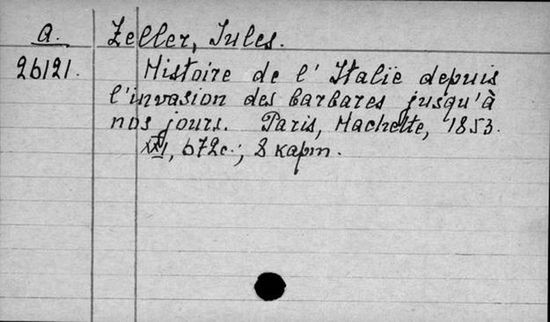 a. Zeller, Jules.
26121. Histoire de l' Italië depuis
l'invasion des barbares jusqu'à
nos jours. Paris, Hachette, 1853.
XXI, 672с.; 8 карт.